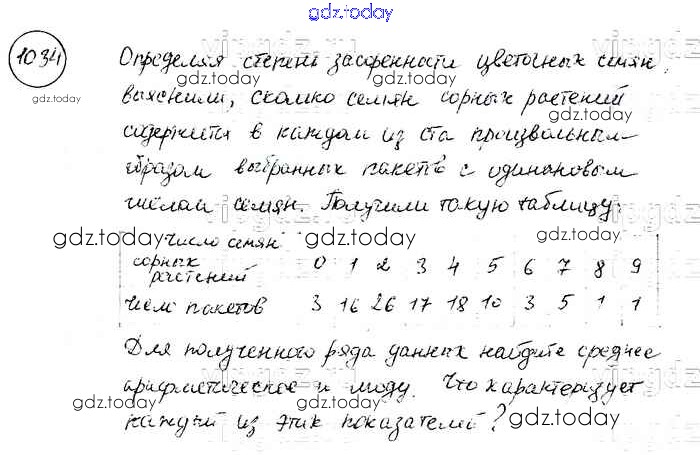 gdz.today
1034
Определяя степень засоренности цветочных семян,
выяснили, сколько семян сорных растений
содержится в каждом из ста произвольным
образом выбранных пакетов с одинаковым
числом семян. Получили такую таблицу:
Число семян
сорных
растений 0 1 2 3 4 5 6 7 8 9
Число пакетов 3 16 26 17 18 10 3 5 1 1
Для полученного ряда данных найдите среднее
арифметическое и моду. Что характеризует
каждый из этих показателей?
gdz.today
gdz.today
gdz.today
gdz.today
gdz.today
gdz.today
gdz.today
gdz.today
gdz.today
gdz.today
gdz.today